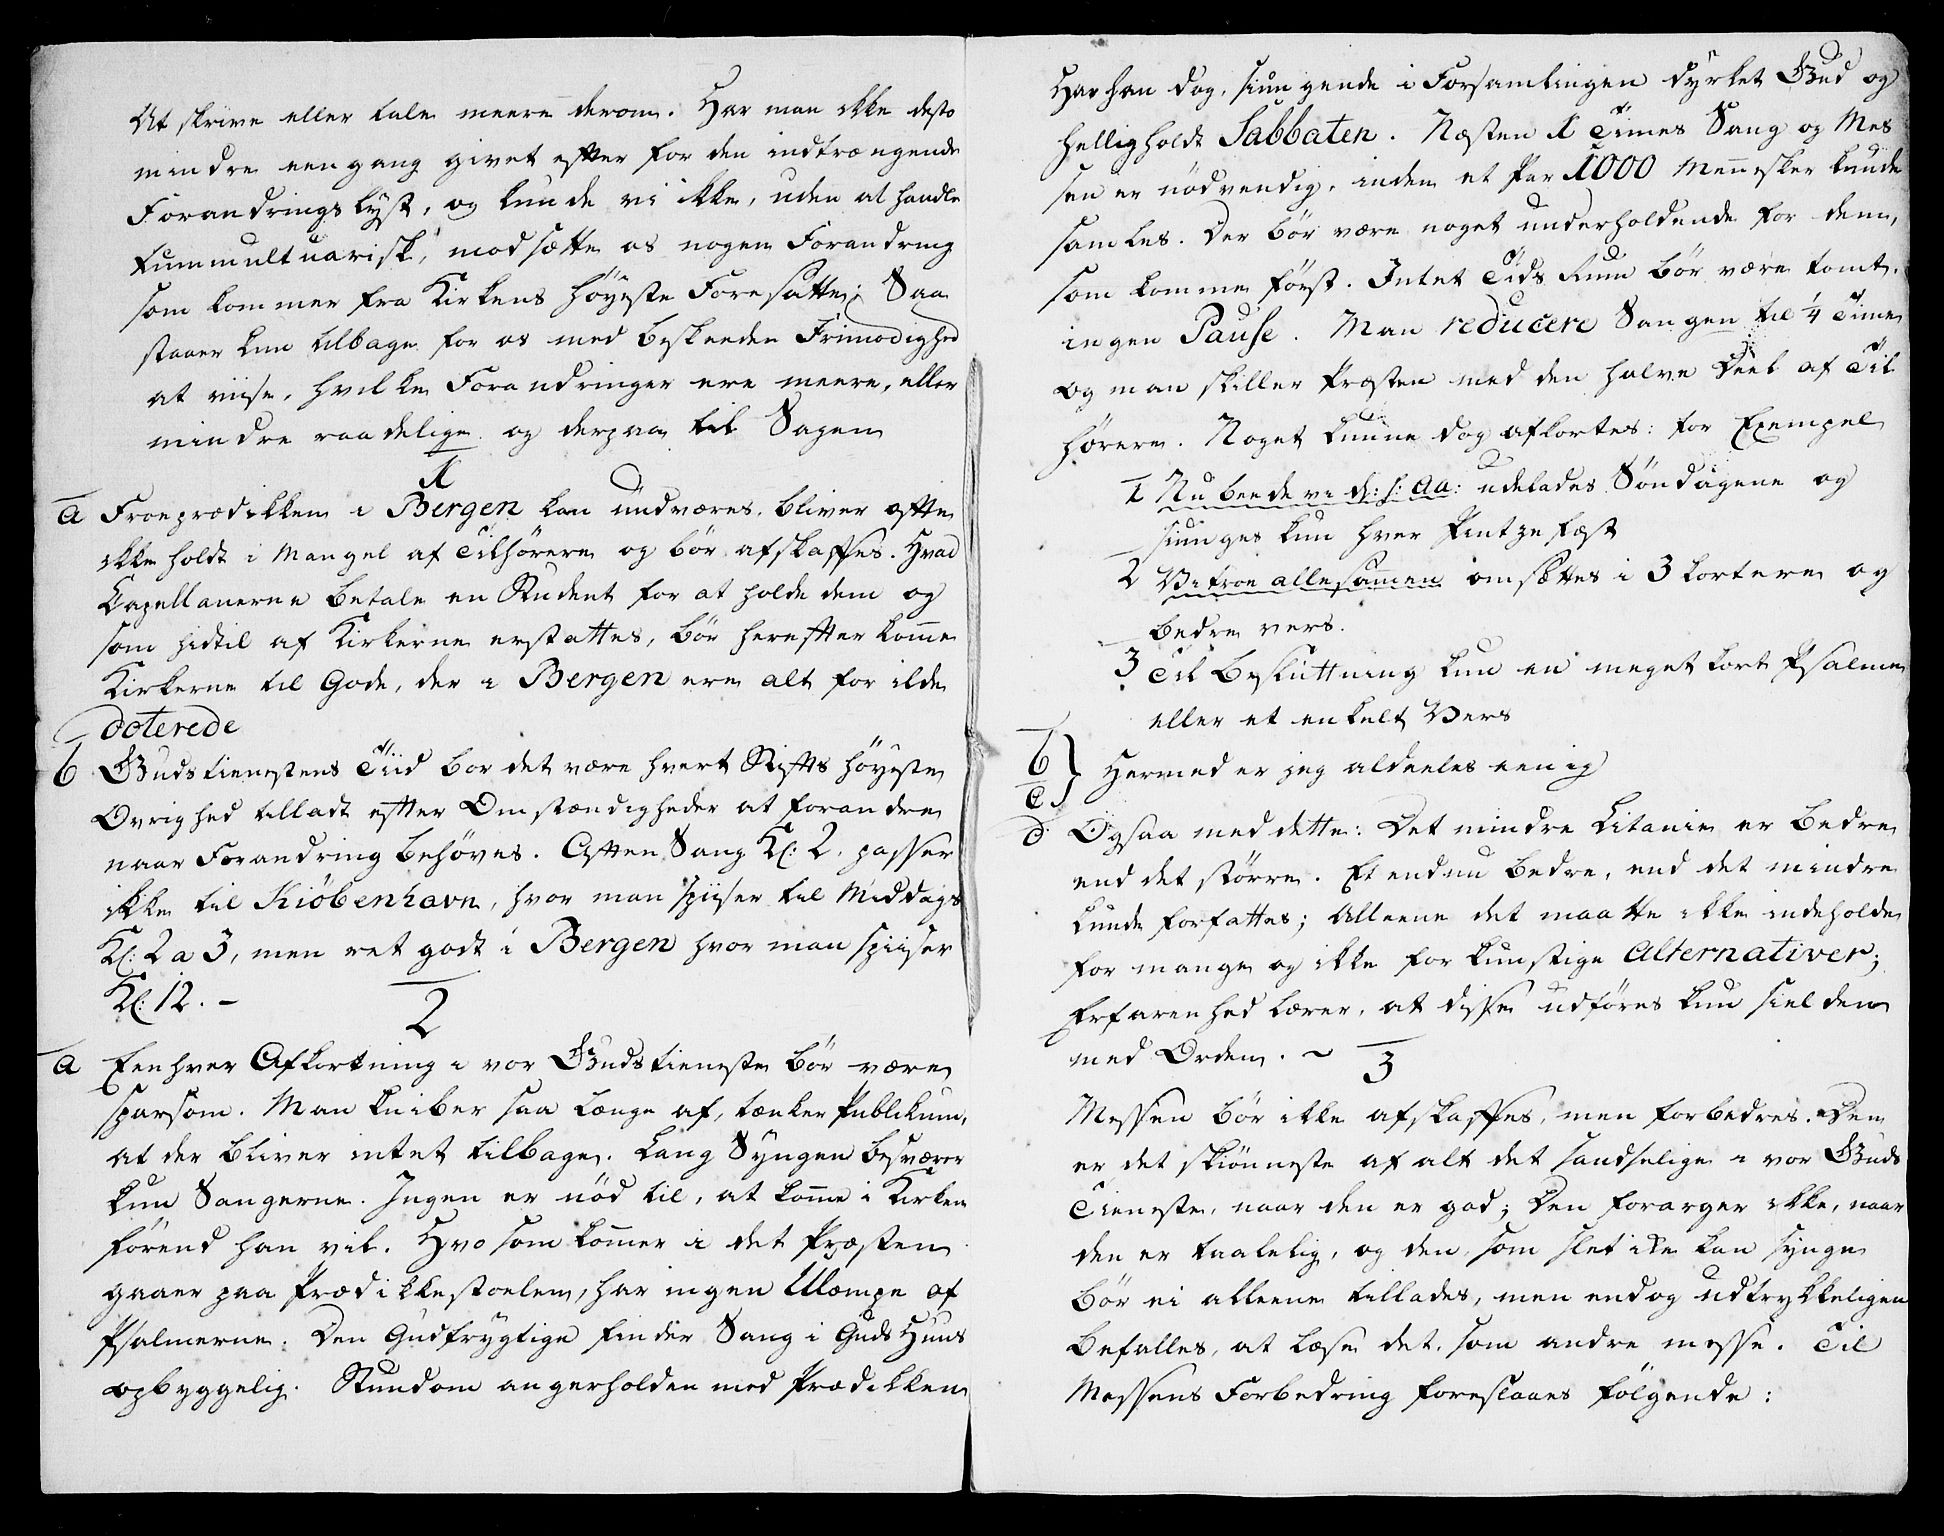 At skrive eller tale meere derom. Har man ikke desto
mindre eengang givet efter for den indtrængende
Forandrings lyst, og kunde vi ikke, uden at handle
tummultuarisk, modsætte os nogen Forandring
som kommer fra Kirkens høyeste Foresatte; Saa
staaer kun tilbage for os med beskeeden Frimodighed
at viise, hvilke Forandringer ere meere, eller
mindre raadelige og derpaa til Sagen
1
a Froeprædikken i Bergen kan undværes, bliver ofte
ikke holdt i Mangel af Tilhørere og bør afskaffes. Hvad
Capellanerne betale en Student for at holde dem og
som hidtil af Kirkerne erstattes, bør herefter komme
Kirkerne til Gode, der i Bergen ere alt for ilde
doterede
b Gudstienestens Tiid bør det være hvert Stifts høyeste
Øvrighed tilladt efter Omstændigheder at forandre
naar Forandring behøves. Aften Sang Kl: 2. passer
ikke til Kiöbenhavn, hvor man spiiser til Middags
Kl: 2 a 3, men ret godt i Bergen hvor man spiiser
Kl: 12. –
2
a Eenhver Afkortning i vor Gudstieneste bør være
sparsom. Man kniber saa længe af, tænker Publikum,
at der bliver intet tilbage. Lang Syngen besværer
kun Sangerne. Ingen er nød til, at komme i Kirken
førend han vil. Hvo som kommer i det Præsten
gaaer paa Prædikkestoelen, har ingen Ulempe af
Psalmerne. Den Gudfrygtige finder Sang i Guds Huus
opbyggelig. Stundom angerholden med Prædikken
Har han dog, siungende i Forsamlingen dyrket Gud og
helligholdt Sabbaten. Næsten 1 Times Sang og Mes
sen er nödvendig, inden et Par 1000 Mennesker kunde
samles. Der bör være noget underholdende for dem,
som komme först. Intet Tids Rum bör være tomt.
ingen Pause. Man reducere Sangen til 1/4 Time
og man skiller Præsten med den halve Deel af Til
hörere. Noget kunne dog afkortes: for Exempel
1 Nu beede vi d: h: Aa: udelades Söndagene og
siunges kun hver Pintzefæst
2 Vi troe allesammen omsættes i 3 kortere og
bedre vers.
3 Til Besluttning kun en meget kort Psalme
eller et enkelt Vers
b
c } Hermed er jeg aldeeles eenig
d Ogsaa med dette: Det mindre Litanie er bedre
end det större. Et endnu bedre, end det mindre
kunde forfattes; Alleene det maatte ikke indeholde
for mange og ikke for kunstige Alternativer;
Erfarenhed lærer, at disse udföres kun sielden
med Orden. ~
3
Messen bör ikke afskaffes, men forbedres. Den
er det skiönneste af alt det sandselige i vor Guds
Tieneste, naar den er god; Den forarger ikke, naar
den er taalelig, og den, som slet ikke kan synge
bör ei alleene tillades, men endog udtrykkeligen
befalles, at læse det, som andre messe. Til
Messens Forbedring foreslaaes fölgende: